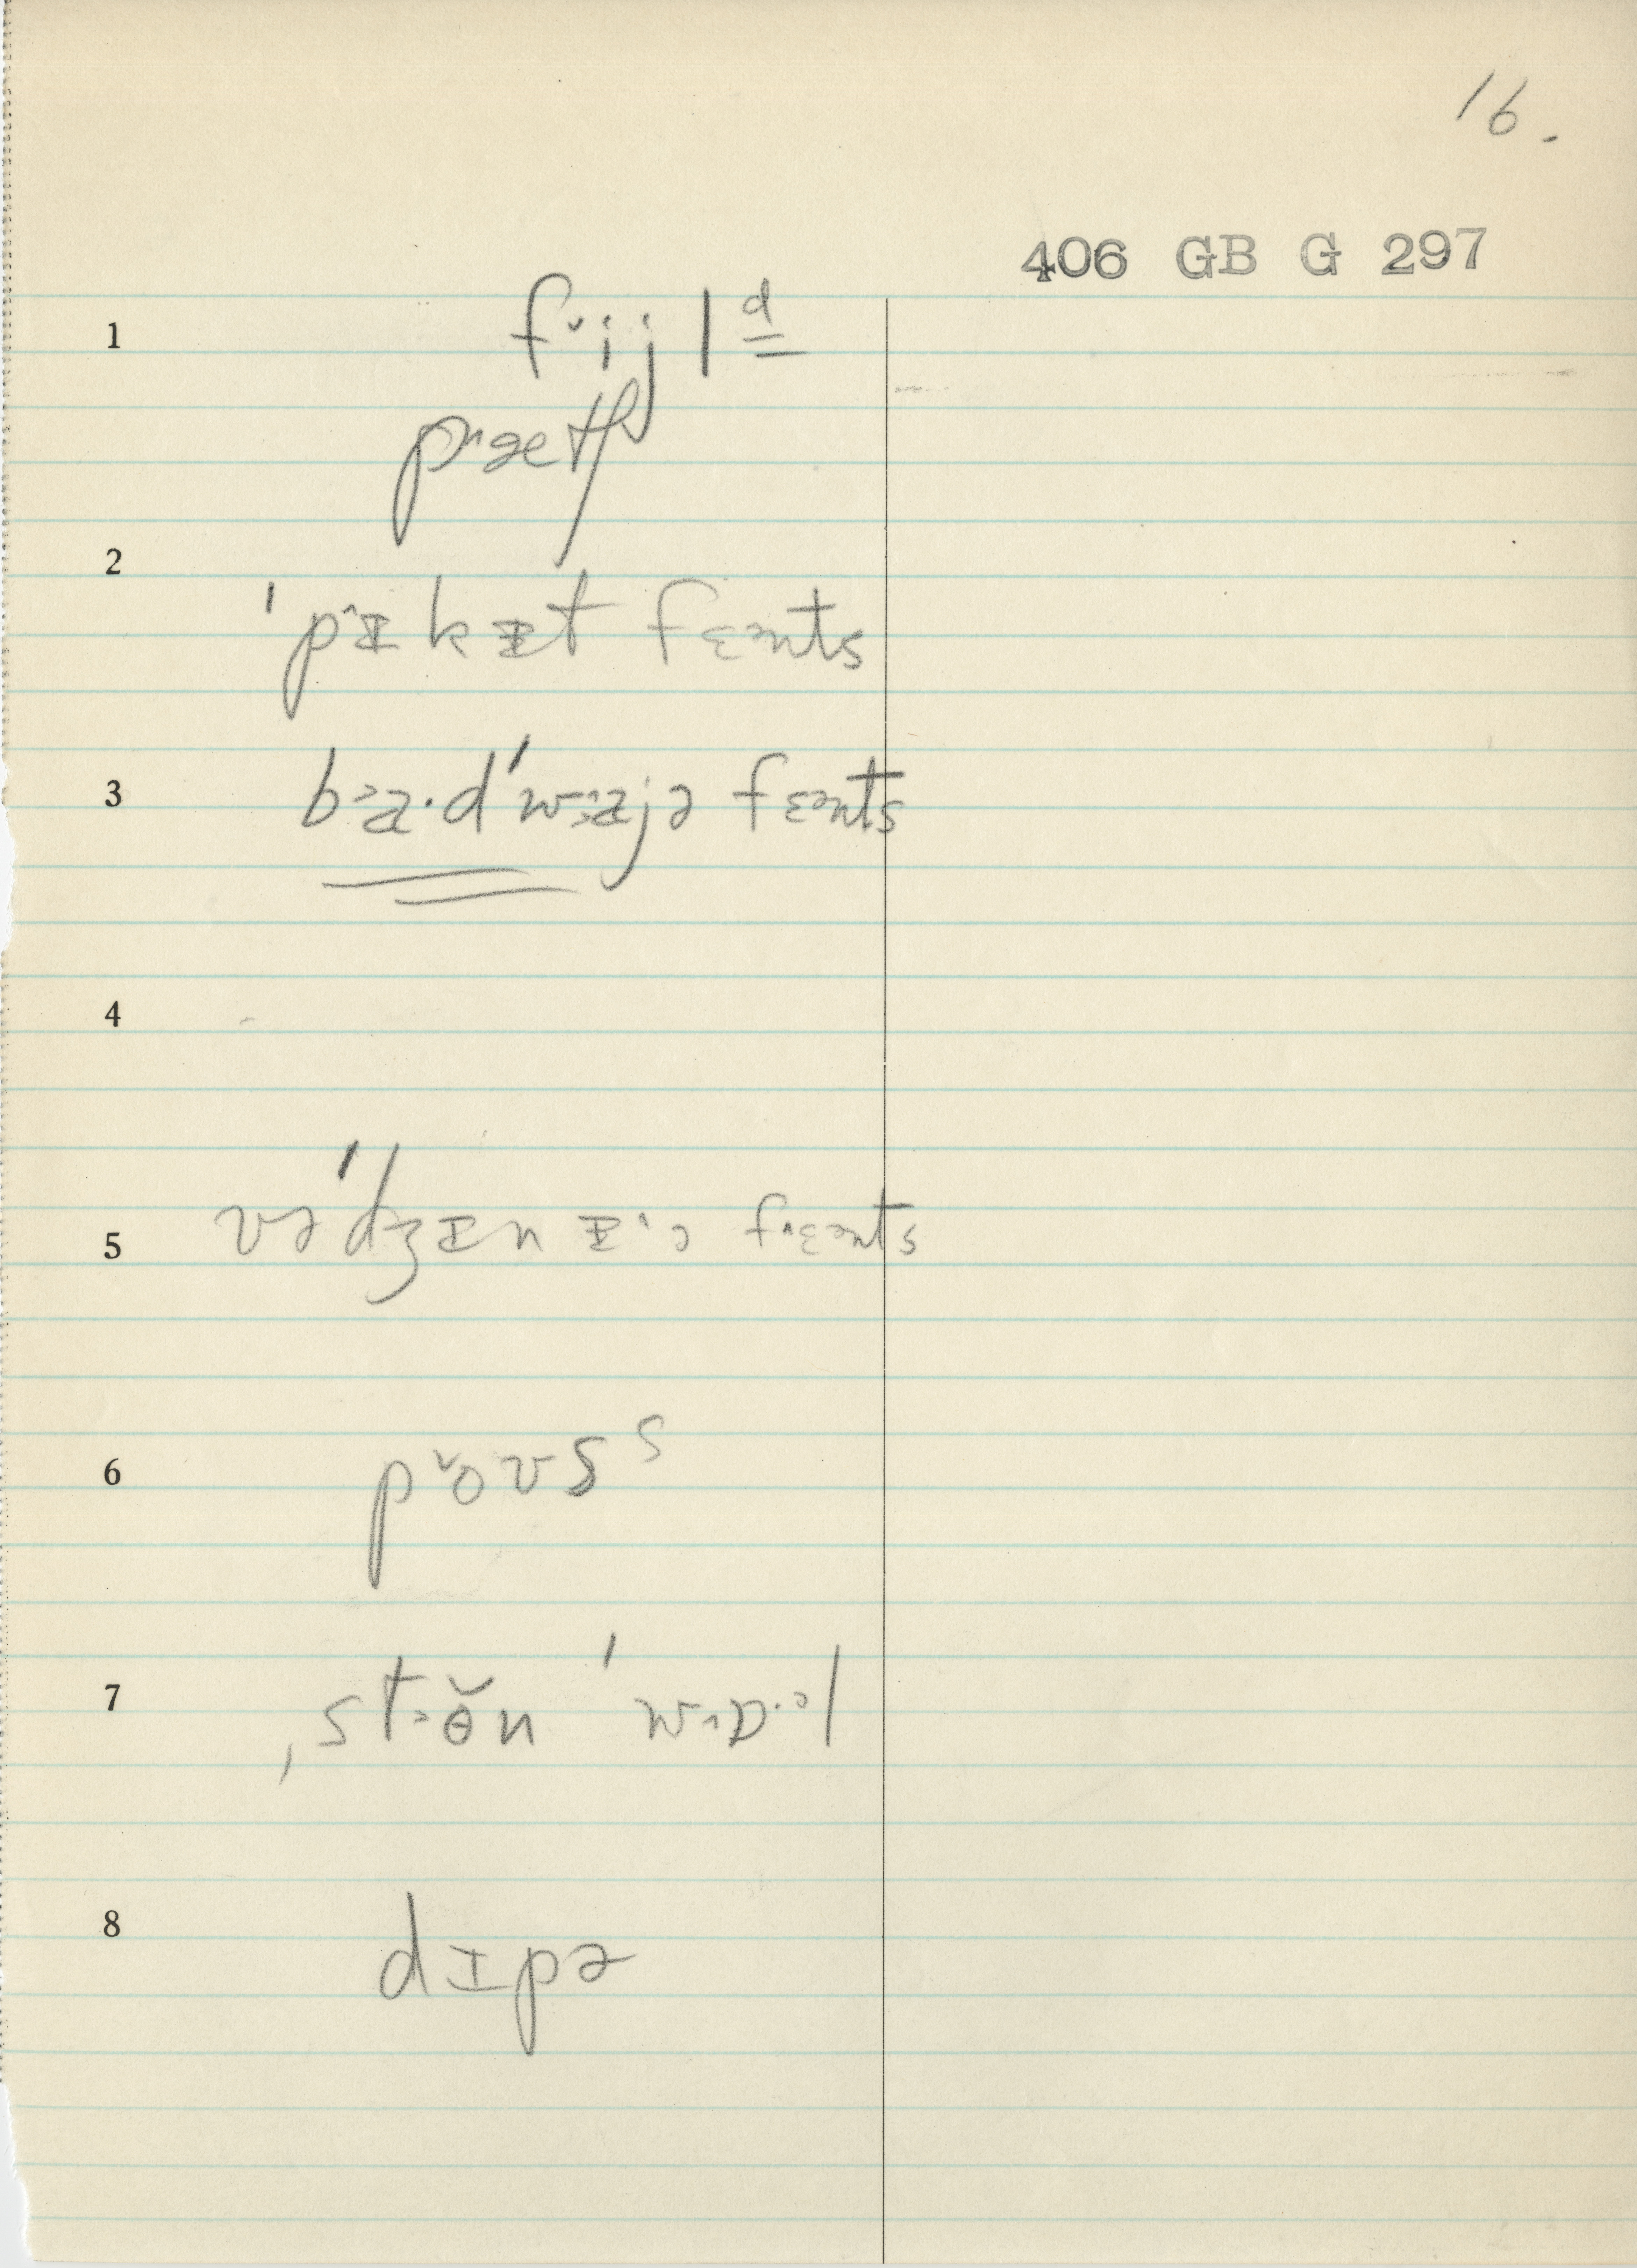 16.
406 GB G 297
1 f˅ijlᵈ
p˄ætʃ
2 ˈp˄ɪkɪt fɛənts
3 b˃a·dˈw˃ajə fɛənts
4
5 vəˈdʒɪnɪ˄ə f˄ɛənts
6 p˅oʊsˢ
7 ˌst˃ɵ̆n ˈw˄ɒ·ᵊl
8 dɪpə